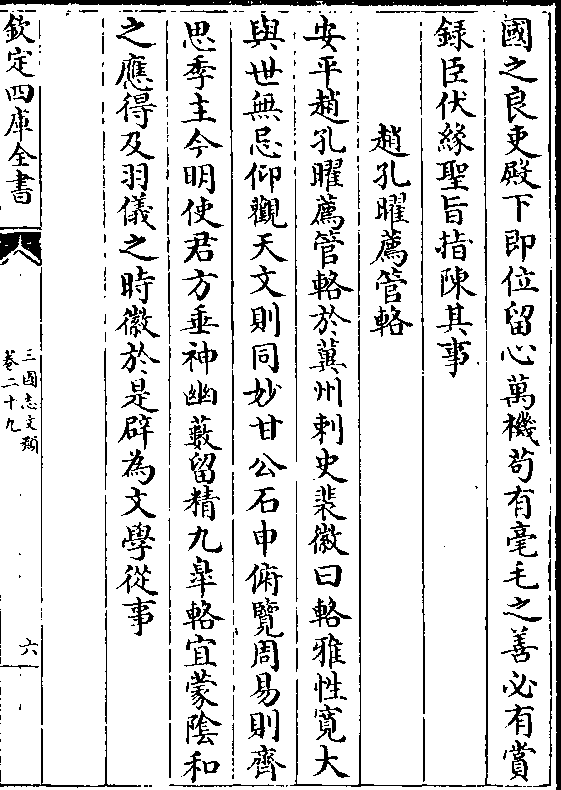 國之良吏殿下即位留心萬機苟有毫毛之善必有賞
録臣伏緣聖旨指陳其事
趙孔曜薦管輅
安平趙孔曜薦管輅於冀州刺史裴徽曰輅雅性寛大
與世無忌仰觀天文則同妙甘公石申俯覽周易則齊
思季主今明使君方垂神幽藪留精九臯輅宜蒙陰和
之應得及羽儀之時徽於是辟為文學從事
欽定四庫全書
三國志文類
卷二十九
六